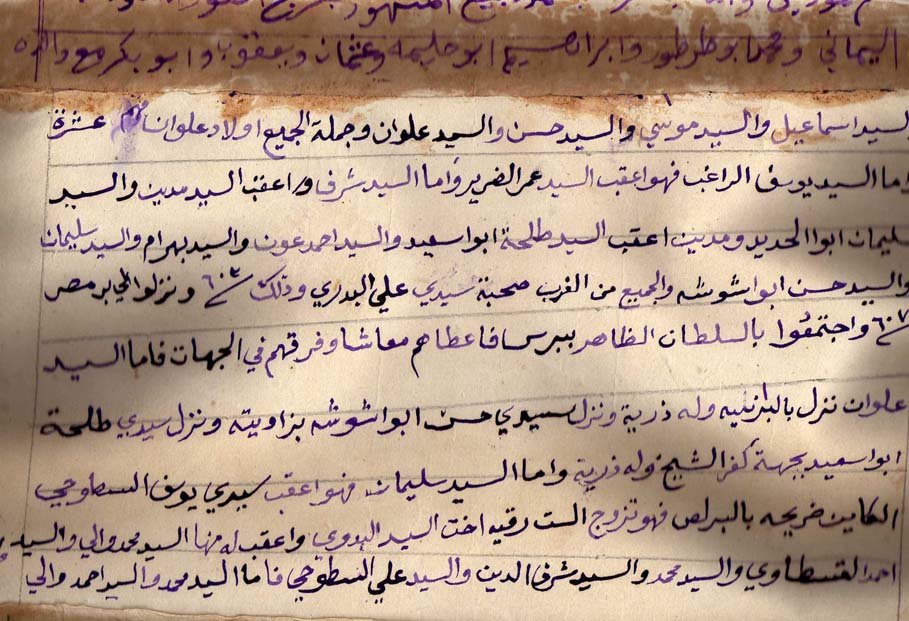 اليماني ومحمد ابو طرطور وابراهيم ابو حليمه وعثمان ويعقوب وابو بكر مع والده
السيد اسماعيل والسيد موسي والسيد حسن والسيد علوان وجملة الجميع اولاد علوان عشرة
واما السيد يوسف الراغب فهو اعقب السيد عمر الضرير واما السيد شرف واعقب السيد مدين والسيد
سليمان ابوا الحديد ومدين اعقب السيد طلحة ابوا سعيد والسيد احمد عون والسيد بهرام والسيد سليمان
والسيد حسن ابوا شوشه والجميع من الغرب صحبة سيدي علي البدري وذلك ٦٠٣ ونزلوا الي بر مصر
٦٠٧ واجتمعوا بالسلطان الظاهر بيبرس فاعطاهم معاشا وفرقهم في الجهات فاما السيد
علوان نزل وله ذرية ونزل سيدي حسن ابوا شوشه بزاويته ونزل سيدي طلحة
ابوا سعيد بجهة كفر الشيخ وله ذرية واما السيد سليمان فهو اعقب سيدي يوسف السطوحي
الكاين ضريحه بالبرلس فهو تزوج الست رقيه اخت السيد البدوي واعقب له منها السيد محمد والي والسيد
احمد والسيد محمد والسيد شرف الدين والسيد علي السطوحي فاما السيد محمد والسيد احمد والي